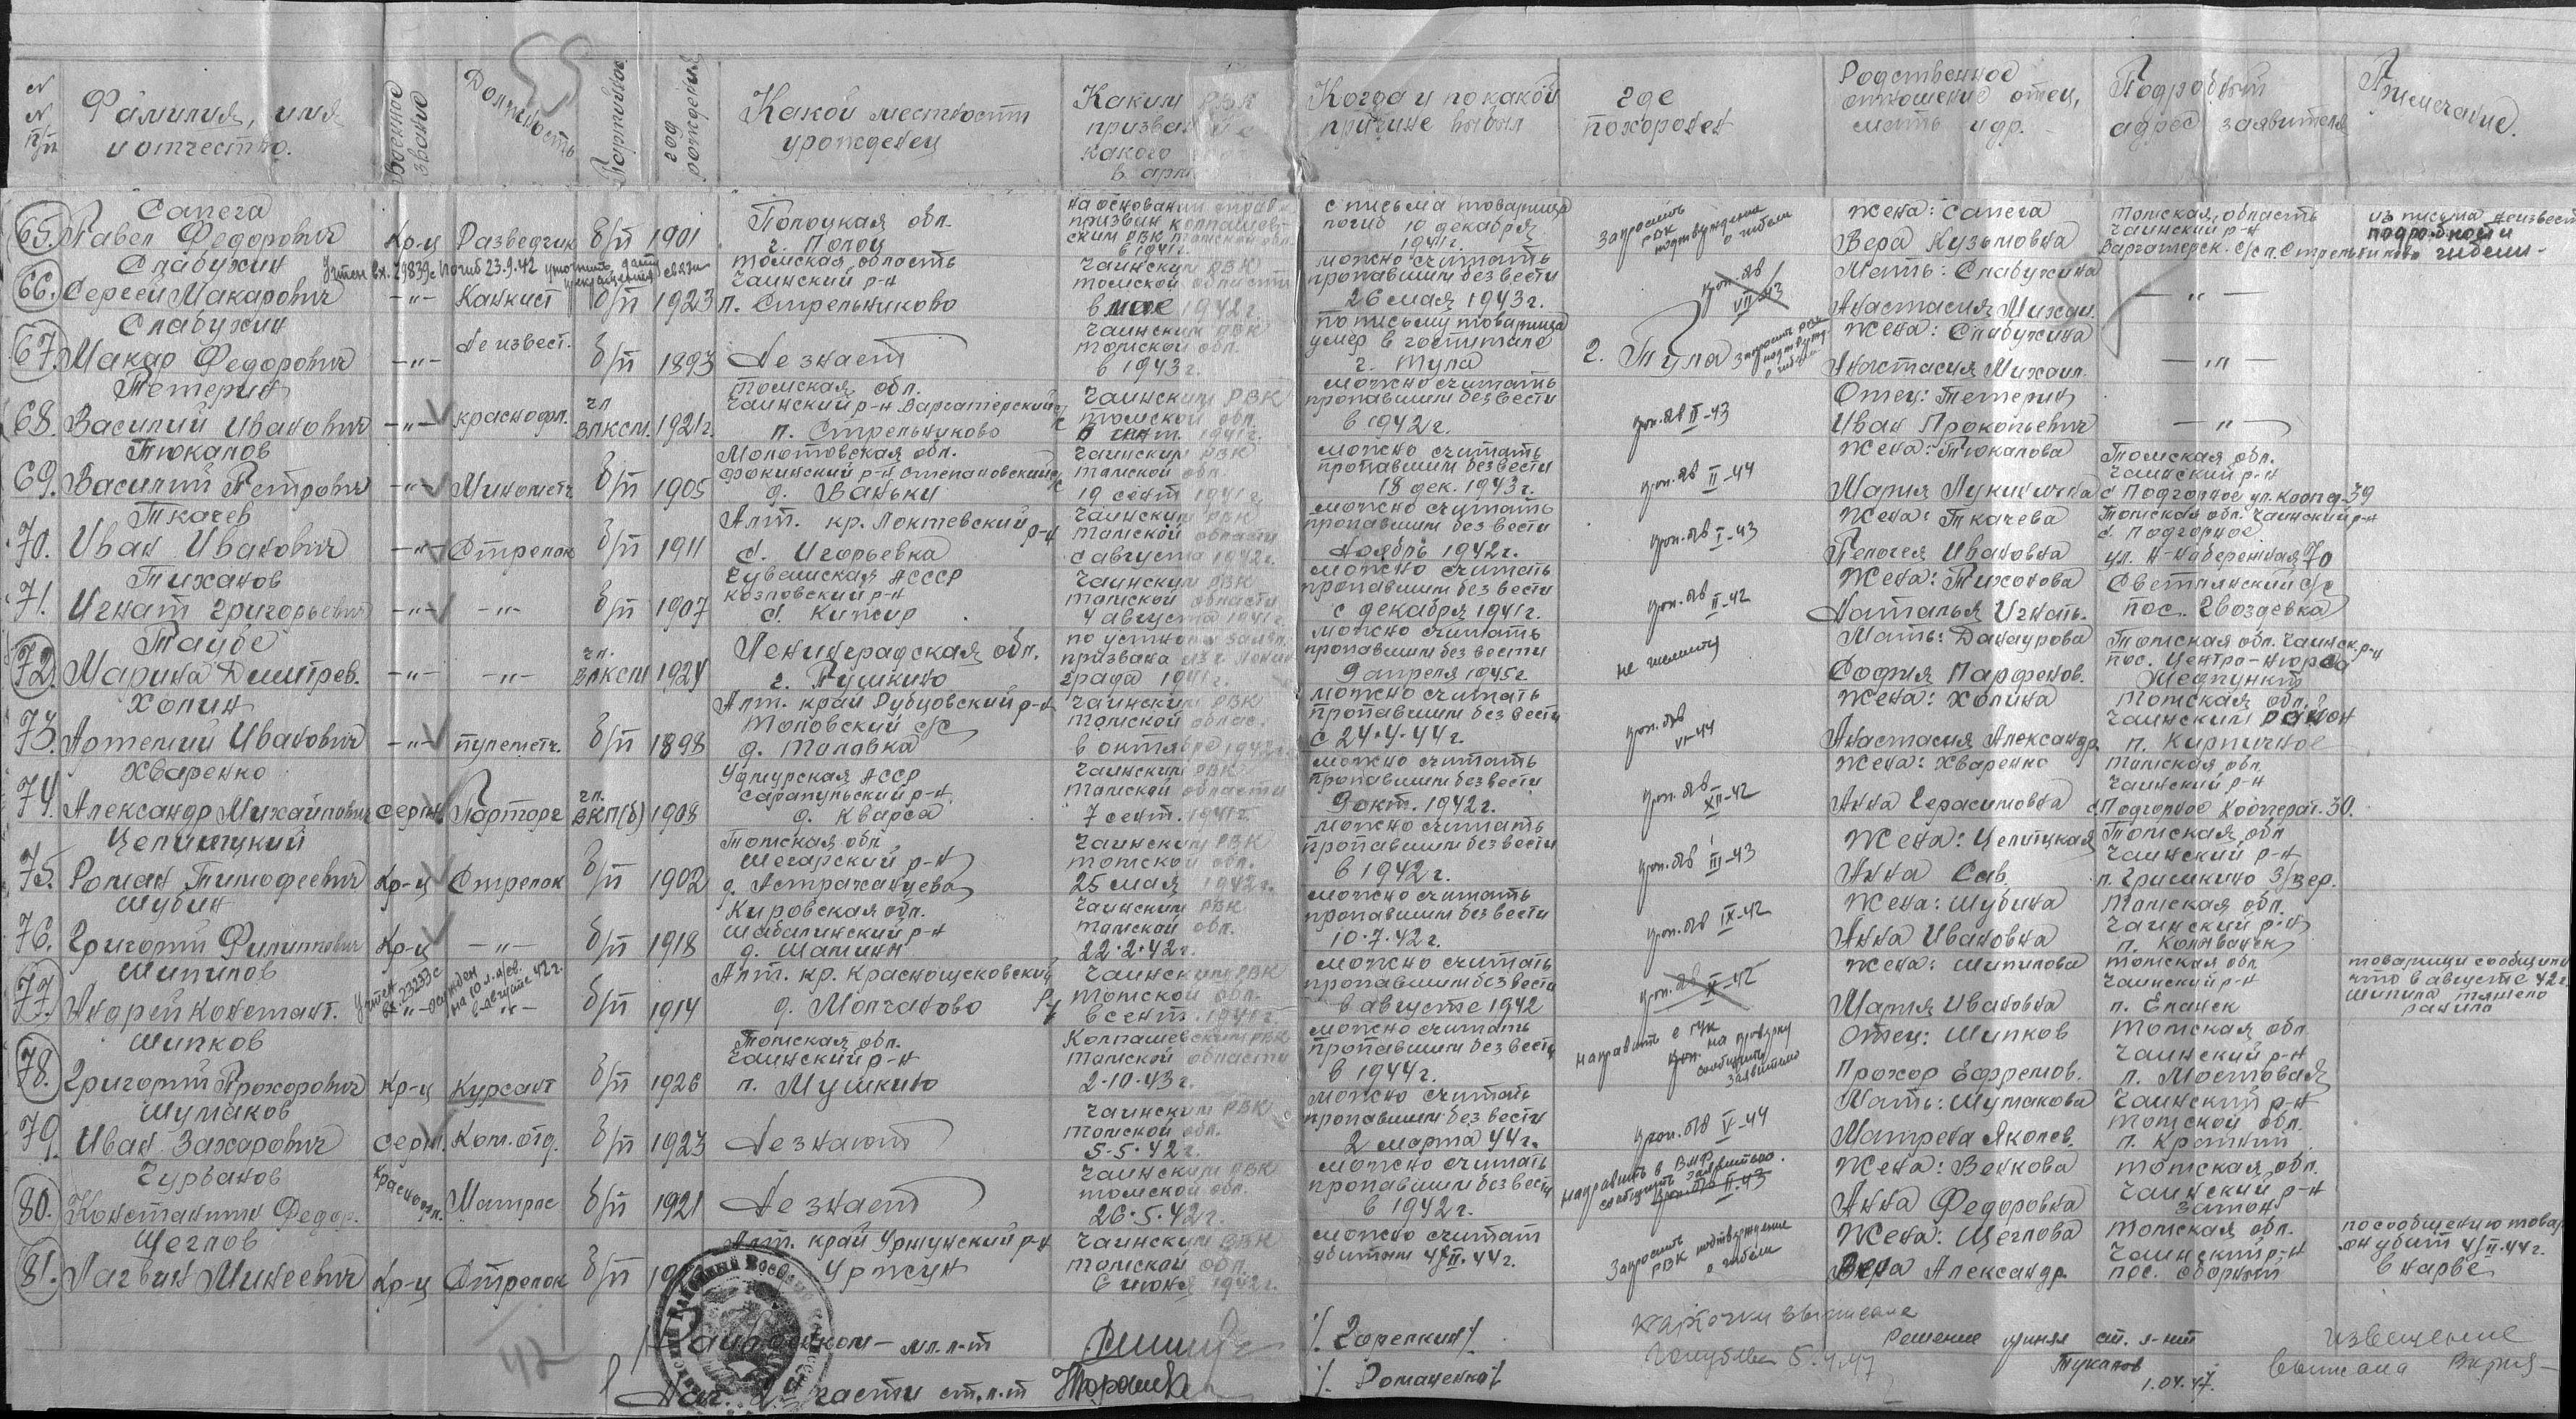 55
№ № п/п
Фамилия, имя и отчество.
Военное звание
Должность
Партийное
год рождения
Какой местности урожденец
Каким РВК
призван
какого
в арм
Когда и по какой причине выбыл
где похоронен
Родственное отношение отец, мать и др.
Подробный адрес заявителя
Примечание.
65. Сапега
Павел Федорович
Кр-ц
Разведчик
б/п
1901
Полоцкая обл.
г. Полоц
на основании
призван Колпашев-
ским РВК Томской обл.
в 1941г.
с письма товарища
погиб 10 декабря
1941г.
Запросить
РВК
подтверждение
о гибели
Жена: Сапега
Вера Кузьмовна
Томская область
Чаинский р-н
Варгатерск. с/с п. Стрельниково
из письма неизвест
подробности
гибели-
66. Слабухин
Сергей Макарович
Учтен вх. 79839с Погиб 23.9.42 уточнить дату прекращения связи
-"-
Танкист
б/п
1923
Томская область
Чаинский р-н
п. Стрельниково
Чаинским РВК
Томской области
в мае 1942г.
можно считать
пропавшим без вести
26 мая 1943г.
VII-43
Мать: Слабухина
Анастасия Михаил.
-"-
67. Слабухин
Макар Федорович
-"-
Неизвест.
б/п
1893
Не знает
Чаинским РВК
Томской обл.
в 1943г.
по письму товарища
умер в госпитале
г. Тула
г. Тула
запросить РВК
подтвержд.
о гибели
Жена: Слабухина
Анастасия Михаил.
-"-
68. Тетерин
Василий Иванович
-"-
краснофл.
чл
ВЛКСМ.
1921г.
Томская обл.
Чаинский р-н Варгатерский с/с
п. Стрельниково
Чаинским РВК
Томской обл.
1941г.
можно считать
пропавшим без вести
в 1942г.
проп. б/в II-43
Отец: Тетерин
Иван Прокопьевич
-"-
69. Тюкалов
Василий Петрович
-"-
Минометч
б/п
1905
Молотовская обл.
Фокинский р-н Степановский с/с
д. Ваньки
Чаинским РВК
Томской обл.
19 сент 1941г.
можно считать
пропавшим без вести
18 дек. 1943г.
проп. б/в II-44
Жена: Тюкалова
Мария Лукинична
Томская обл.
Чаинский р-н
с Подгорное ул. Кооп д-39
70. Ткачев
Иван Иванович
-"-
Стрелок
б/п
1911
Алт. кр. Локтевский р-н
с. Игорьевка
Чаинским РВК
Томской области
с августа 1942г.
можно считать
пропавшим без вести
Ноябрь 1942г.
проп. б/в I-43
Жена: Ткачева
Пелогея Ивановна
Томская обл. Чаинский р-н
с. Подгорное
ул. Н-набережная 70
71. Тиханов
Игнат Григорьевич
-"-
-"-
б/п
1907
Чувашская АССР
Козловский р-н
с. Кинир
Чаинским РВК
Томской области
4 августа 1941г.
можно считать
пропавшим без вести
с декабря 1941г.
проп. б/в II-42
Жена: Тихонова
Наталья Игнать.
Светлянский с/с
пос. Гвоздевка
72. Таубе
Марина Дмитрев.
-"-
-"-
чл.
ВЛКСМ
1924
Ленинградская обл.
г. Пушкино
по устному заявл.
призвана из г. Ленин
града 1941г.
можно считать
пропавшим без вести
9 апреля 1945г.
Мать: Данаурова
София Парфенов.
Томская обл. Чаинск. р-н
пос. Центро-Нюрса
Медпункт
73. Холин
Артемий Иванович
-"-
пулеметч.
б/п
1898
Алт. край Рубцовский р-н
Толовский с/с
д. Таловка
Чаинским РВК
Томской облас.
в октябре 1942г.
можно считать
пропавшим без вести
с 24.4.44г.
проп. б/в
VI-44
Жена: Холина
Анастасия Александр.
Томская обл.
Чаинским район
п. Кирпичное
74. Хваренко
Александр Михайлович
Сержн.
Парторг
чл.
ВКП(б)
1908
Удмурская АССР
Сарапульский р-н
д. Кварса
Чаинским РВК
Томской области
7 сент. 1941г.
можно считать
пропавшим без вести
9 окт. 1942г.
проп. б/в
XII-42
Жена: Хваренко
Анна Герасимовна
Томская обл.
Чаинский р-н
с. Подгорное Кооперат. 30.
75. Целицкий
Роман Тимофеевич
Кр-ц
Стрелок
б/п
1902
Томская обл
Шегарский р-н
д. Астраханцева
Чаинским РВК
Томской обл.
25 мая 1942г.
можно считать
пропавшим без вести
в 1942г.
проп. б/в III-43
Жена: Целицкая
Анна Сав.
Томская обл
Чаинский р-н
п. Гришкино З/зер.
76. Шубин
Григорий Филиппович
Кр-ц
-"-
б/п
1918
Кировская обл.
Шабалинский р-н
д. Шатин
Чаинским РВК
Томской обл.
22.2.42г.
можно считать
пропавшим без вести
10.7.42г.
проп. б/в IX-42
Жена: Шубина
Анна Ивановна
Томская обл.
Чаинский р-н
77. Шипилов
Андрей Констант.
Учтен
вх. 23233с
осужден
на 10 л.
в августе 42г.
-"-
-"-
б/п
1914
Алт. кр. Краснощековский
д. Молчаново
Чаинским РВК
Томской обл.
в сент. 1941г.
можно считать
пропавшим без вести
в августе 1942
проп. б/в X-42
Жена: Шипилова
Мария Ивановна
Томская обл
Чаинский р-н
п. Еланск
товарищи сообщили
что в августе 42г.
Шипила тяжело
ранило
78. Шипков
Григорий Прохорович
Кр-ц
Курсант
б/п
1926
Томская обл.
Чаинский р-н
п. Мушкино
Колпашевским РВК
Томской области
2.10.43г.
можно считать
пропавшим без вести
в 1944г.
направить в ГУК
на проверку
сообщить
заявителю
Отец: Шипков
Прохор Ефремов.
Томская обл.
Чаинский р-н
п. Мостовая
79. Шумаков
Иван Захарович
Серж.
Ком. отд.
б/п
1923
Не знают
Чаинским РВК
Томской обл.
5.5.42г.
можно считать
пропавшим без вести
2 марта 44г.
проп. б/в V-44
Мать: Шумакова
Матрена Яколев.
Чаинский р-н
Томской обл.
80. Чурбанов
Константин Федор.
Краснофл.
Матрос
б/п
1921
Не знает
Чаинским РВК
Томской обл.
26.5.42г.
можно считать
пропавшим без вести
в 1942г.
направить в ВМФ
сообщить заявителю.
проп. б/в II-43
Жена: Венкова
Анна Федоровна
Томская обл.
Чаинский р-н
Затон
81. Щеглов
Лагвин Минеевич
Кр-ц
Стрелок
б/п
Алт. край Уржунский р-н
Уржун
Чаинским РВК
Томской обл.
6 июня 1942г.
можно считат
убитым 4/II.44г.
Запросить
РВК подтверждение
о гибели
Жена: Щеглова
Вера Александр.
Томская обл.
Чаинский р-н
пос. Сборный
по сообщению товар
он убит 4/II.44г.
в нарве
Райвоенком - мл. л-т
/. Горелкин/.
Нач. 2й части ст. л-т
/. Романенко/.
42
карточки выписала
Голубева 5.4.47
Решение принял ст. л-нт
Тукалов
1.04.47.
извещение
выписала